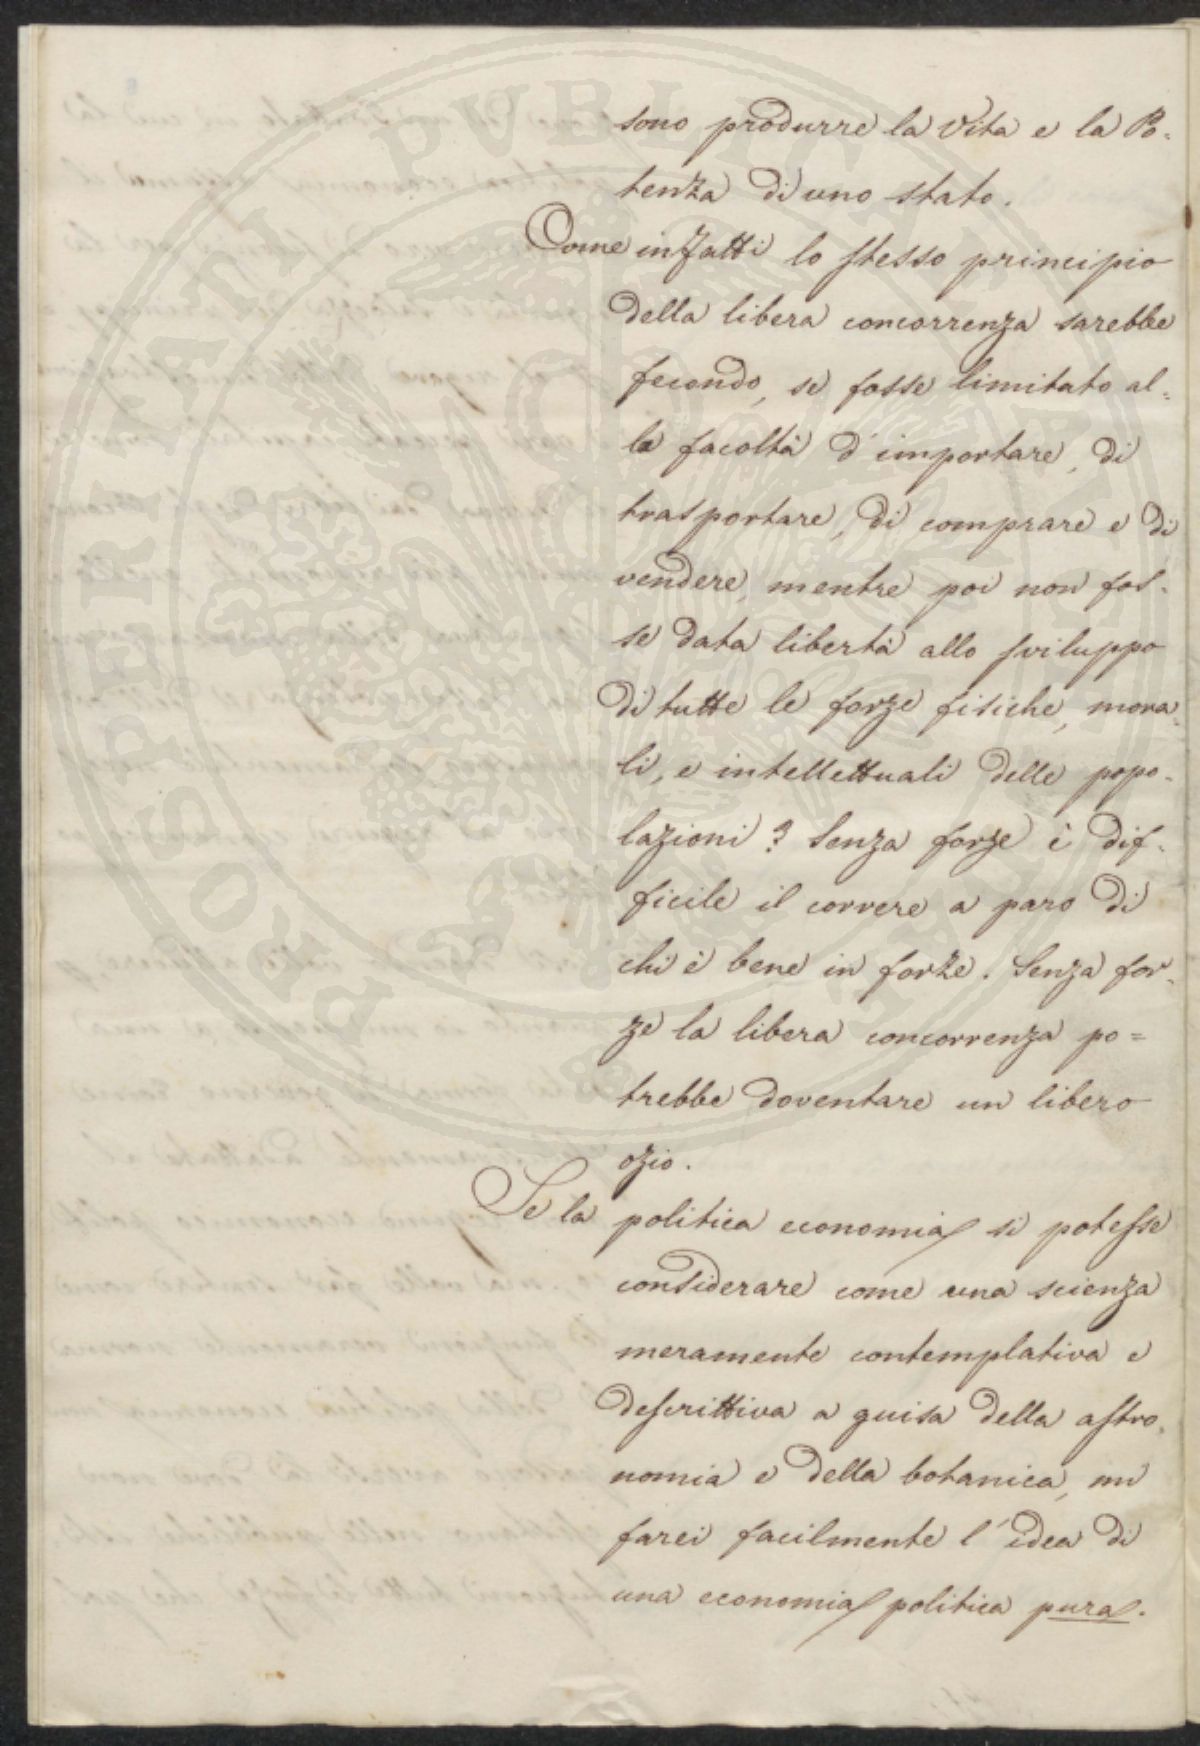 sono produrre la Vita e la Po-
tenza di uno stato.
Come infatti lo stesso principio
della libera concorrenza sarebbe
fecondo, se fosse limitato al-
la facoltà d'importare, di
trasportare, di comprare e di
vendere, mentre poi non fos-
se data libertà allo sviluppo
di tutte le forze fisiche, mora-
li, e intellettuali delle popo-
lazioni? Senza forze è dif-
ficile il correre a paro di
chi è bene in forze. Senza for-
ze la libera concorrenza po=
trebbe doventare un libero
ozio.
Se la politica economia si potesse
considerare come una scienza
meramente contemplativa e
descrittiva a guisa della astro-
nomia e della botanica, mi
farei facilmente l'idea di
una economia politica pura.
PROSPERITATI PVBLICAE